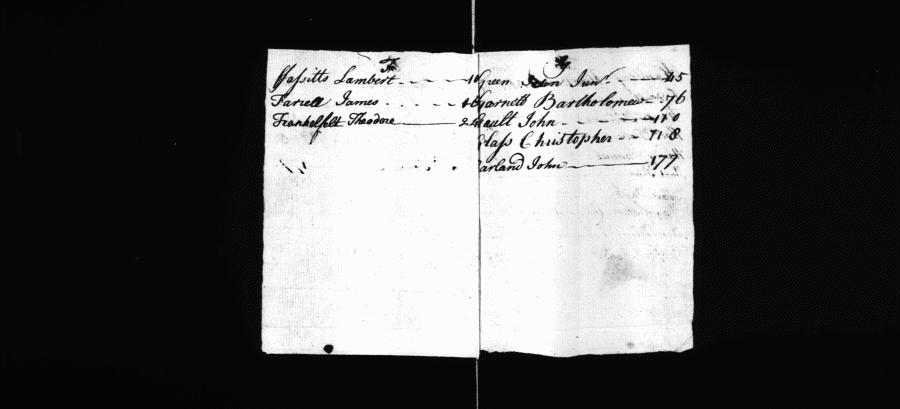 F
Lambert
Farrell James
Frankelfelt Theodore
G
Green Junr 45
Garnett Bartholomew 76
Gault John 110
Glass Christopher 118
Garland John 177